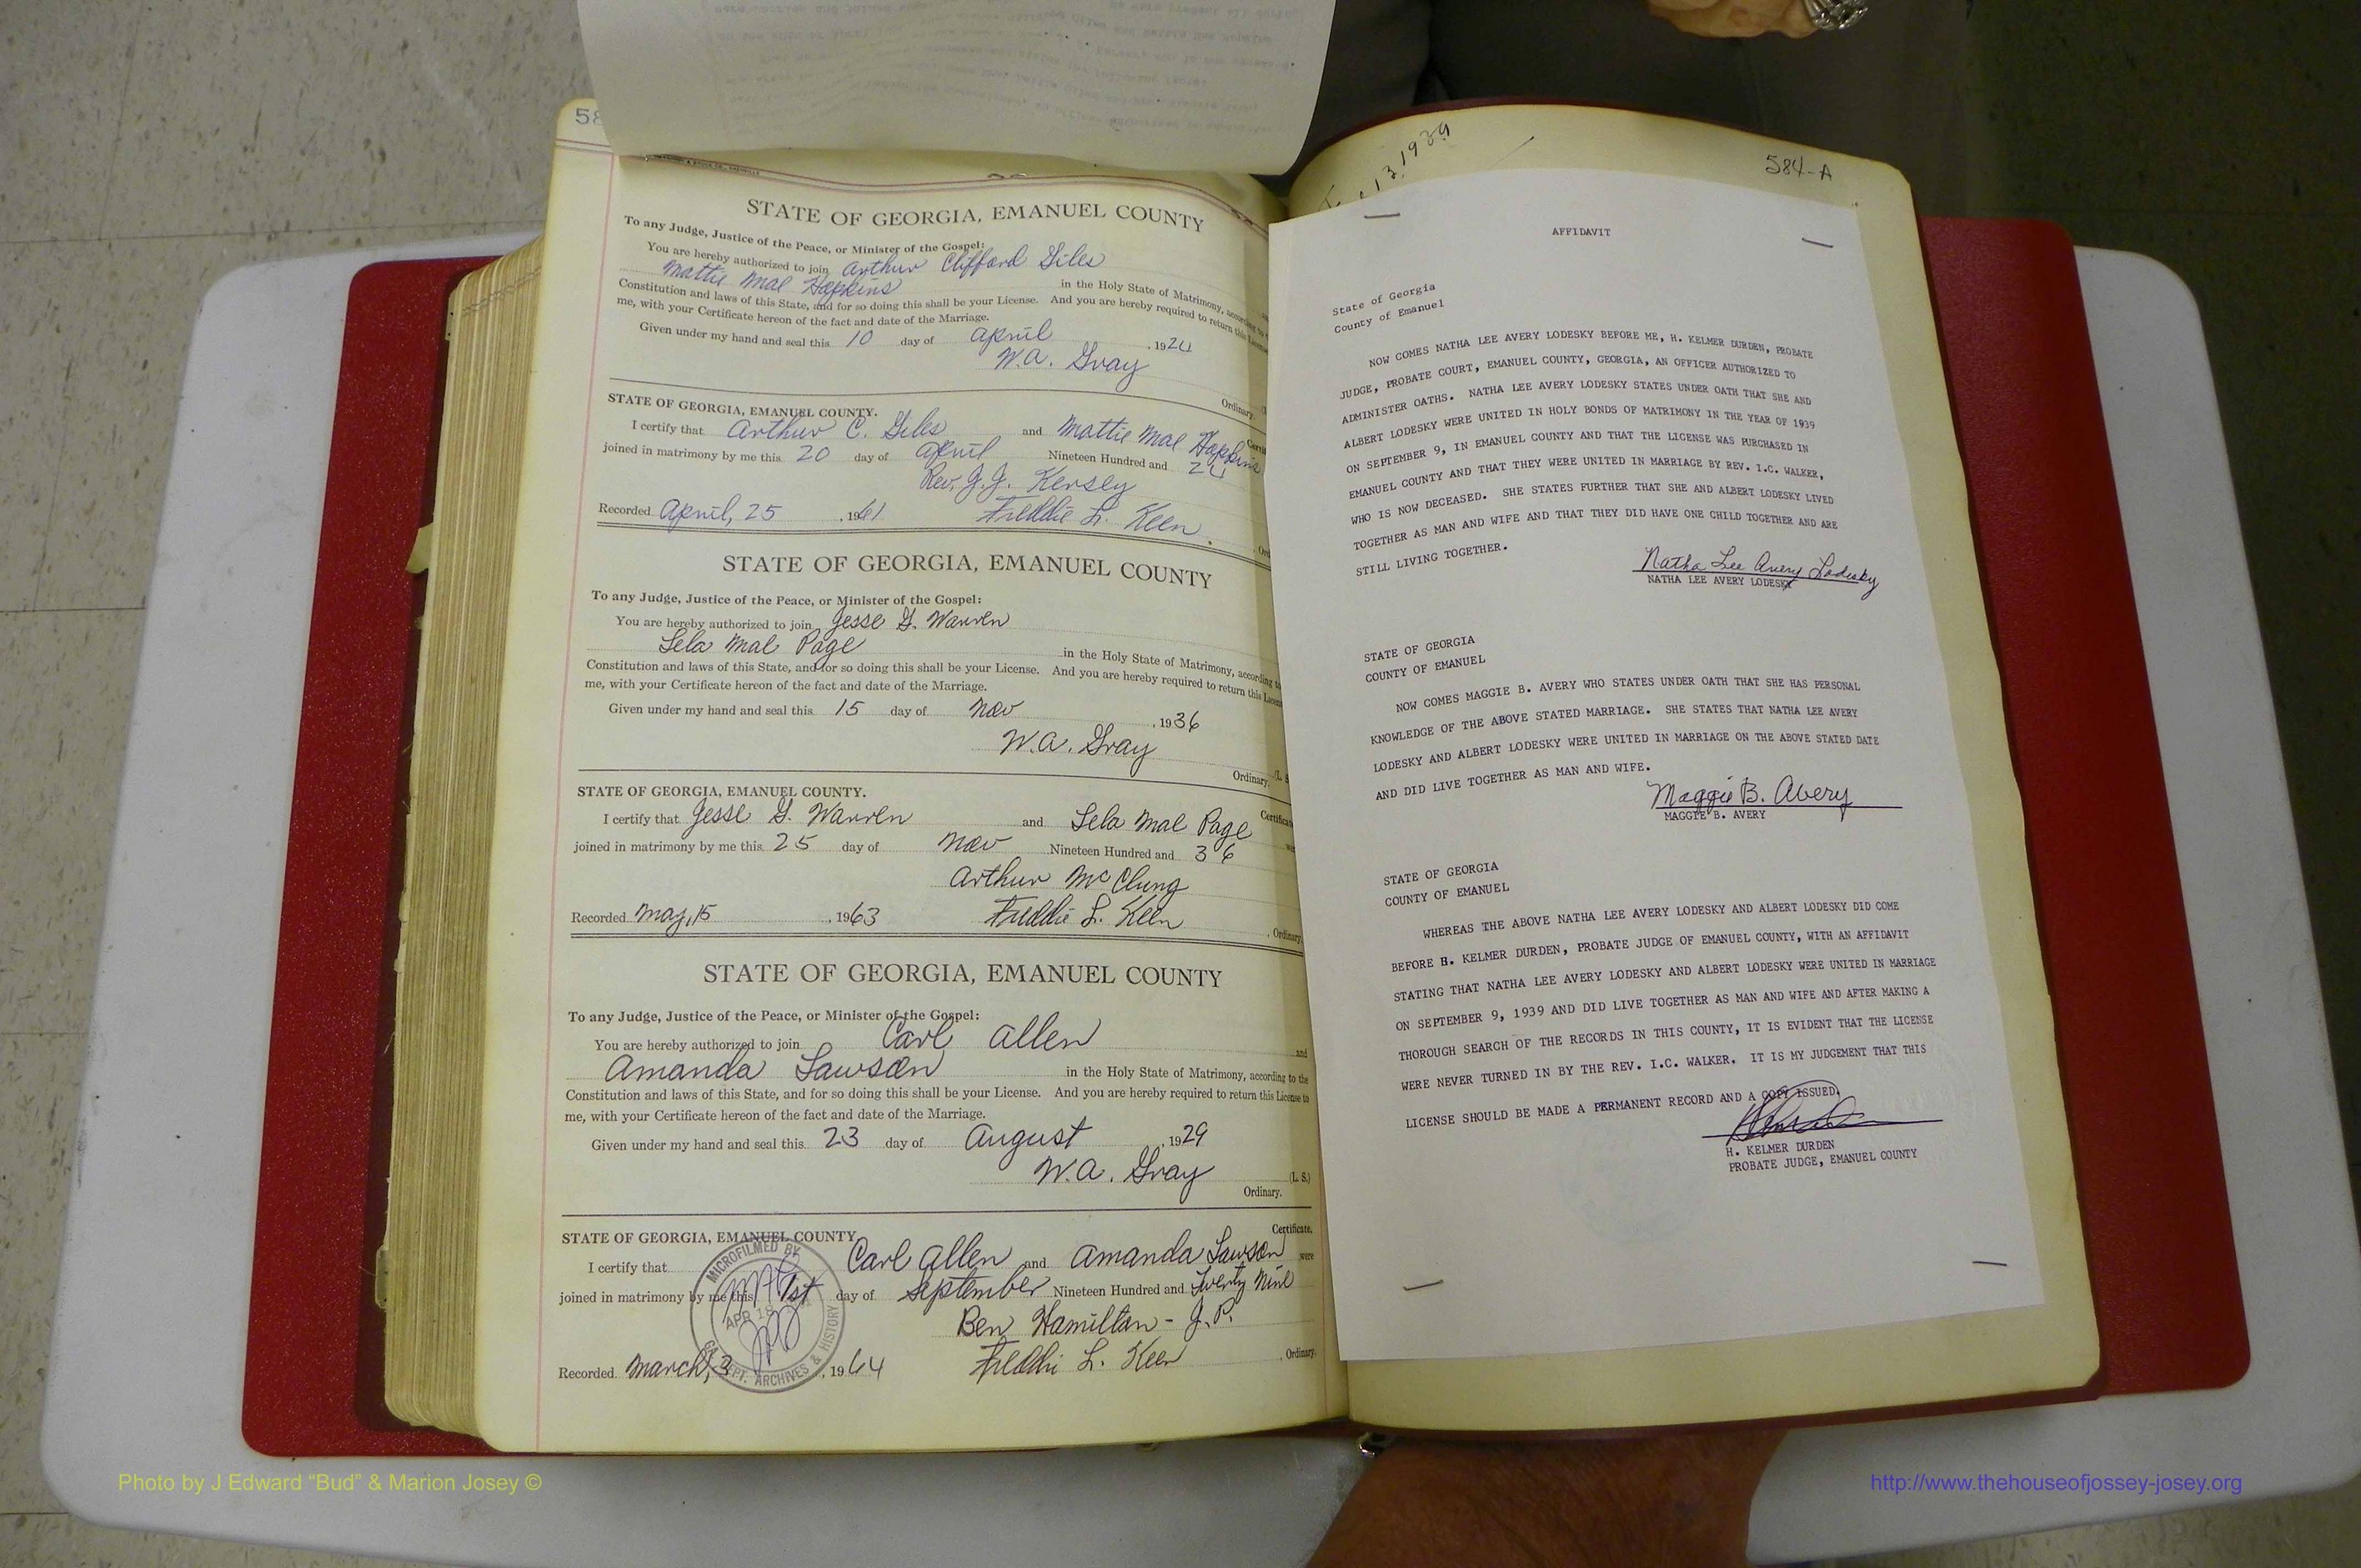 58
STATE OF GEORGIA, EMANUEL COUNTY
To any Judge, Justice of the Peace, or Minister of the Gospel:
You are hereby authorized to join Arthur Clifford Giles
Mattie Mae Hopkins in the Holy State of Matrimony, according to
Constitution and laws of this State, and for so doing this shall be your License. And you are hereby required to return this License
me, with your Certificate hereon of the fact and date of the Marriage.
Given under my hand and seal this 10 day of April, 1924
W.A. Gray
Ordinary.
STATE OF GEORGIA, EMANUEL COUNTY.
I certify that Arthur C. Giles and Mattie Mae Hopkins
joined in matrimony by me this 20 day of April Nineteen Hundred and 24
Rev. J.J. Kersey
Recorded April, 25, 1961 Freddie L. Keen.
STATE OF GEORGIA, EMANUEL COUNTY
To any Judge, Justice of the Peace, or Minister of the Gospel:
You are hereby authorized to join Jesse G. Warren
Lela Mae Page in the Holy State of Matrimony, according to
Constitution and laws of this State, and for so doing this shall be your License. And you are hereby required to return this License
me, with your Certificate hereon of the fact and date of the Marriage.
Given under my hand and seal this 15 day of Nov, 1936
W.A. Gray
Ordinary. (L. S
STATE OF GEORGIA, EMANUEL COUNTY.
Certificate
I certify that Jesse G. Warren and Lela Mae Page
joined in matrimony by me this 25 day of Nov Nineteen Hundred and 36
Arthur McClung
Recorded May, 15, 1963 Freddie L. Keen, Ordinary.
STATE OF GEORGIA, EMANUEL COUNTY
To any Judge, Justice of the Peace, or Minister of the Gospel:
You are hereby authorized to join Carl Allen and
Amanda Lawson in the Holy State of Matrimony, according to the
Constitution and laws of this State, and for so doing this shall be your License. And you are hereby required to return this License to
me, with your Certificate hereon of the fact and date of the Marriage.
Given under my hand and seal this 23 day of August, 1929
W.A. Gray (L. S.)
Ordinary.
Certificate.
STATE OF GEORGIA, EMANUEL COUNTY
I certify that Carl Allen and Amanda Lawson were
joined in matrimony by me this 1st day of September Nineteen Hundred and Twenty Nine
Ben Hamilton - J.P.
Recorded March, 3, 1964 Freddie L. Keen, Ordinary.
MICROFILMED BY
APR 18
GA. DEPT. ARCHIVES & HISTORY
13, 1939
584-A
AFFIDAVIT
State of Georgia
County of Emanuel
NOW COMES NATHA LEE AVERY LODESKY BEFORE ME, H. KELMER DURDEN, PROBATE
JUDGE, PROBATE COURT, EMANUEL COUNTY, GEORGIA, AN OFFICER AUTHORIZED TO
ADMINISTER OATHS. NATHA LEE AVERY LODESKY STATES UNDER OATH THAT SHE AND
ALBERT LODESKY WERE UNITED IN HOLY BONDS OF MATRIMONY IN THE YEAR OF 1939
ON SEPTEMBER 9, IN EMANUEL COUNTY AND THAT THE LICENSE WAS PURCHASED IN
EMANUEL COUNTY AND THAT THEY WERE UNITED IN MARRIAGE BY REV. I.C. WALKER,
WHO IS NOW DECEASED. SHE STATES FURTHER THAT SHE AND ALBERT LODESKY LIVED
TOGETHER AS MAN AND WIFE AND THAT THEY DID HAVE ONE CHILD TOGETHER AND ARE
STILL LIVING TOGETHER.
Natha Lee Avery Lodesky
NATHA LEE AVERY LODESKY
STATE OF GEORGIA
COUNTY OF EMANUEL
NOW COMES MAGGIE B. AVERY WHO STATES UNDER OATH THAT SHE HAS PERSONAL
KNOWLEDGE OF THE ABOVE STATED MARRIAGE. SHE STATES THAT NATHA LEE AVERY
LODESKY AND ALBERT LODESKY WERE UNITED IN MARRIAGE ON THE ABOVE STATED DATE
AND DID LIVE TOGETHER AS MAN AND WIFE.
Maggie B. Avery
MAGGIE B. AVERY
STATE OF GEORGIA
COUNTY OF EMANUEL
WHEREAS THE ABOVE NATHA LEE AVERY LODESKY AND ALBERT LODESKY DID COME
BEFORE H. KELMER DURDEN, PROBATE JUDGE OF EMANUEL COUNTY, WITH AN AFFIDAVIT
STATING THAT NATHA LEE AVERY LODESKY AND ALBERT LODESKY WERE UNITED IN MARRIAGE
ON SEPTEMBER 9, 1939 AND DID LIVE TOGETHER AS MAN AND WIFE AND AFTER MAKING A
THOROUGH SEARCH OF THE RECORDS IN THIS COUNTY, IT IS EVIDENT THAT THE LICENSE
WERE NEVER TURNED IN BY THE REV. I.C. WALKER. IT IS MY JUDGEMENT THAT THIS
LICENSE SHOULD BE MADE A PERMANENT RECORD AND A COPY ISSUED.
H. KELMER DURDEN
PROBATE JUDGE, EMANUEL COUNTY
Photo by J Edward “Bud” & Marion Josey ©
http://www.thehouseofjossey-josey.org